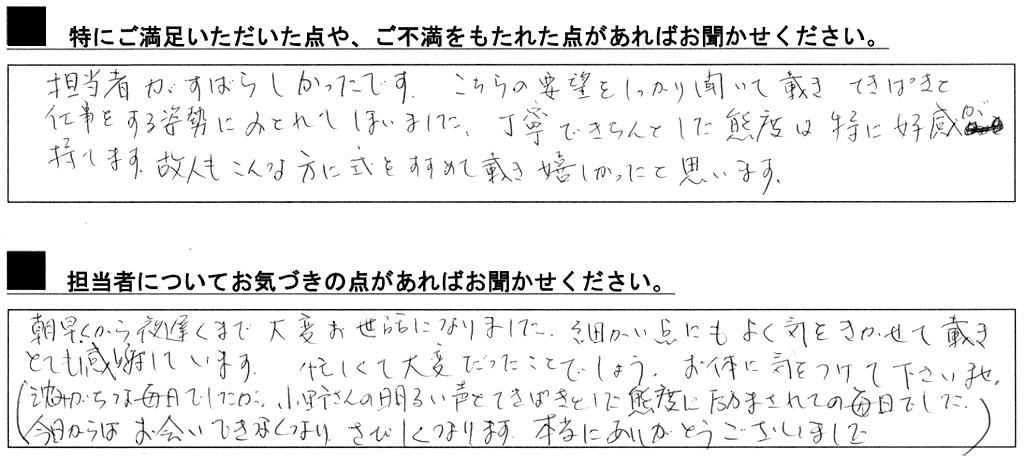 特にご満足いただいた点や、ご不満をもたれた点があればお聞かせください。
担当者がすばらしかったです。こちらの要望をしっかり聞いて戴き てきぱきと
仕事をする姿勢にみとれてしまいました。丁寧できちんとした態度は特に好感が
持てます。故人もこんな方に式をすすめて戴き嬉しかったと思います。
担当者についてお気づきの点があればお聞かせください。
朝早くから夜遅くまで大変お世話になりました。細かい点にもよく気をきかせて戴き
とても感謝しています。 忙しくて大変だったことでしょう。お体に気をつけて下さいませ。
(沈みがちな毎日でしたが、小野さんの明るい声とてきぱきとした態度に励まされての毎日でした。
今日からはお会いできなくなり、さびしくなります。本当にありがとうございました)